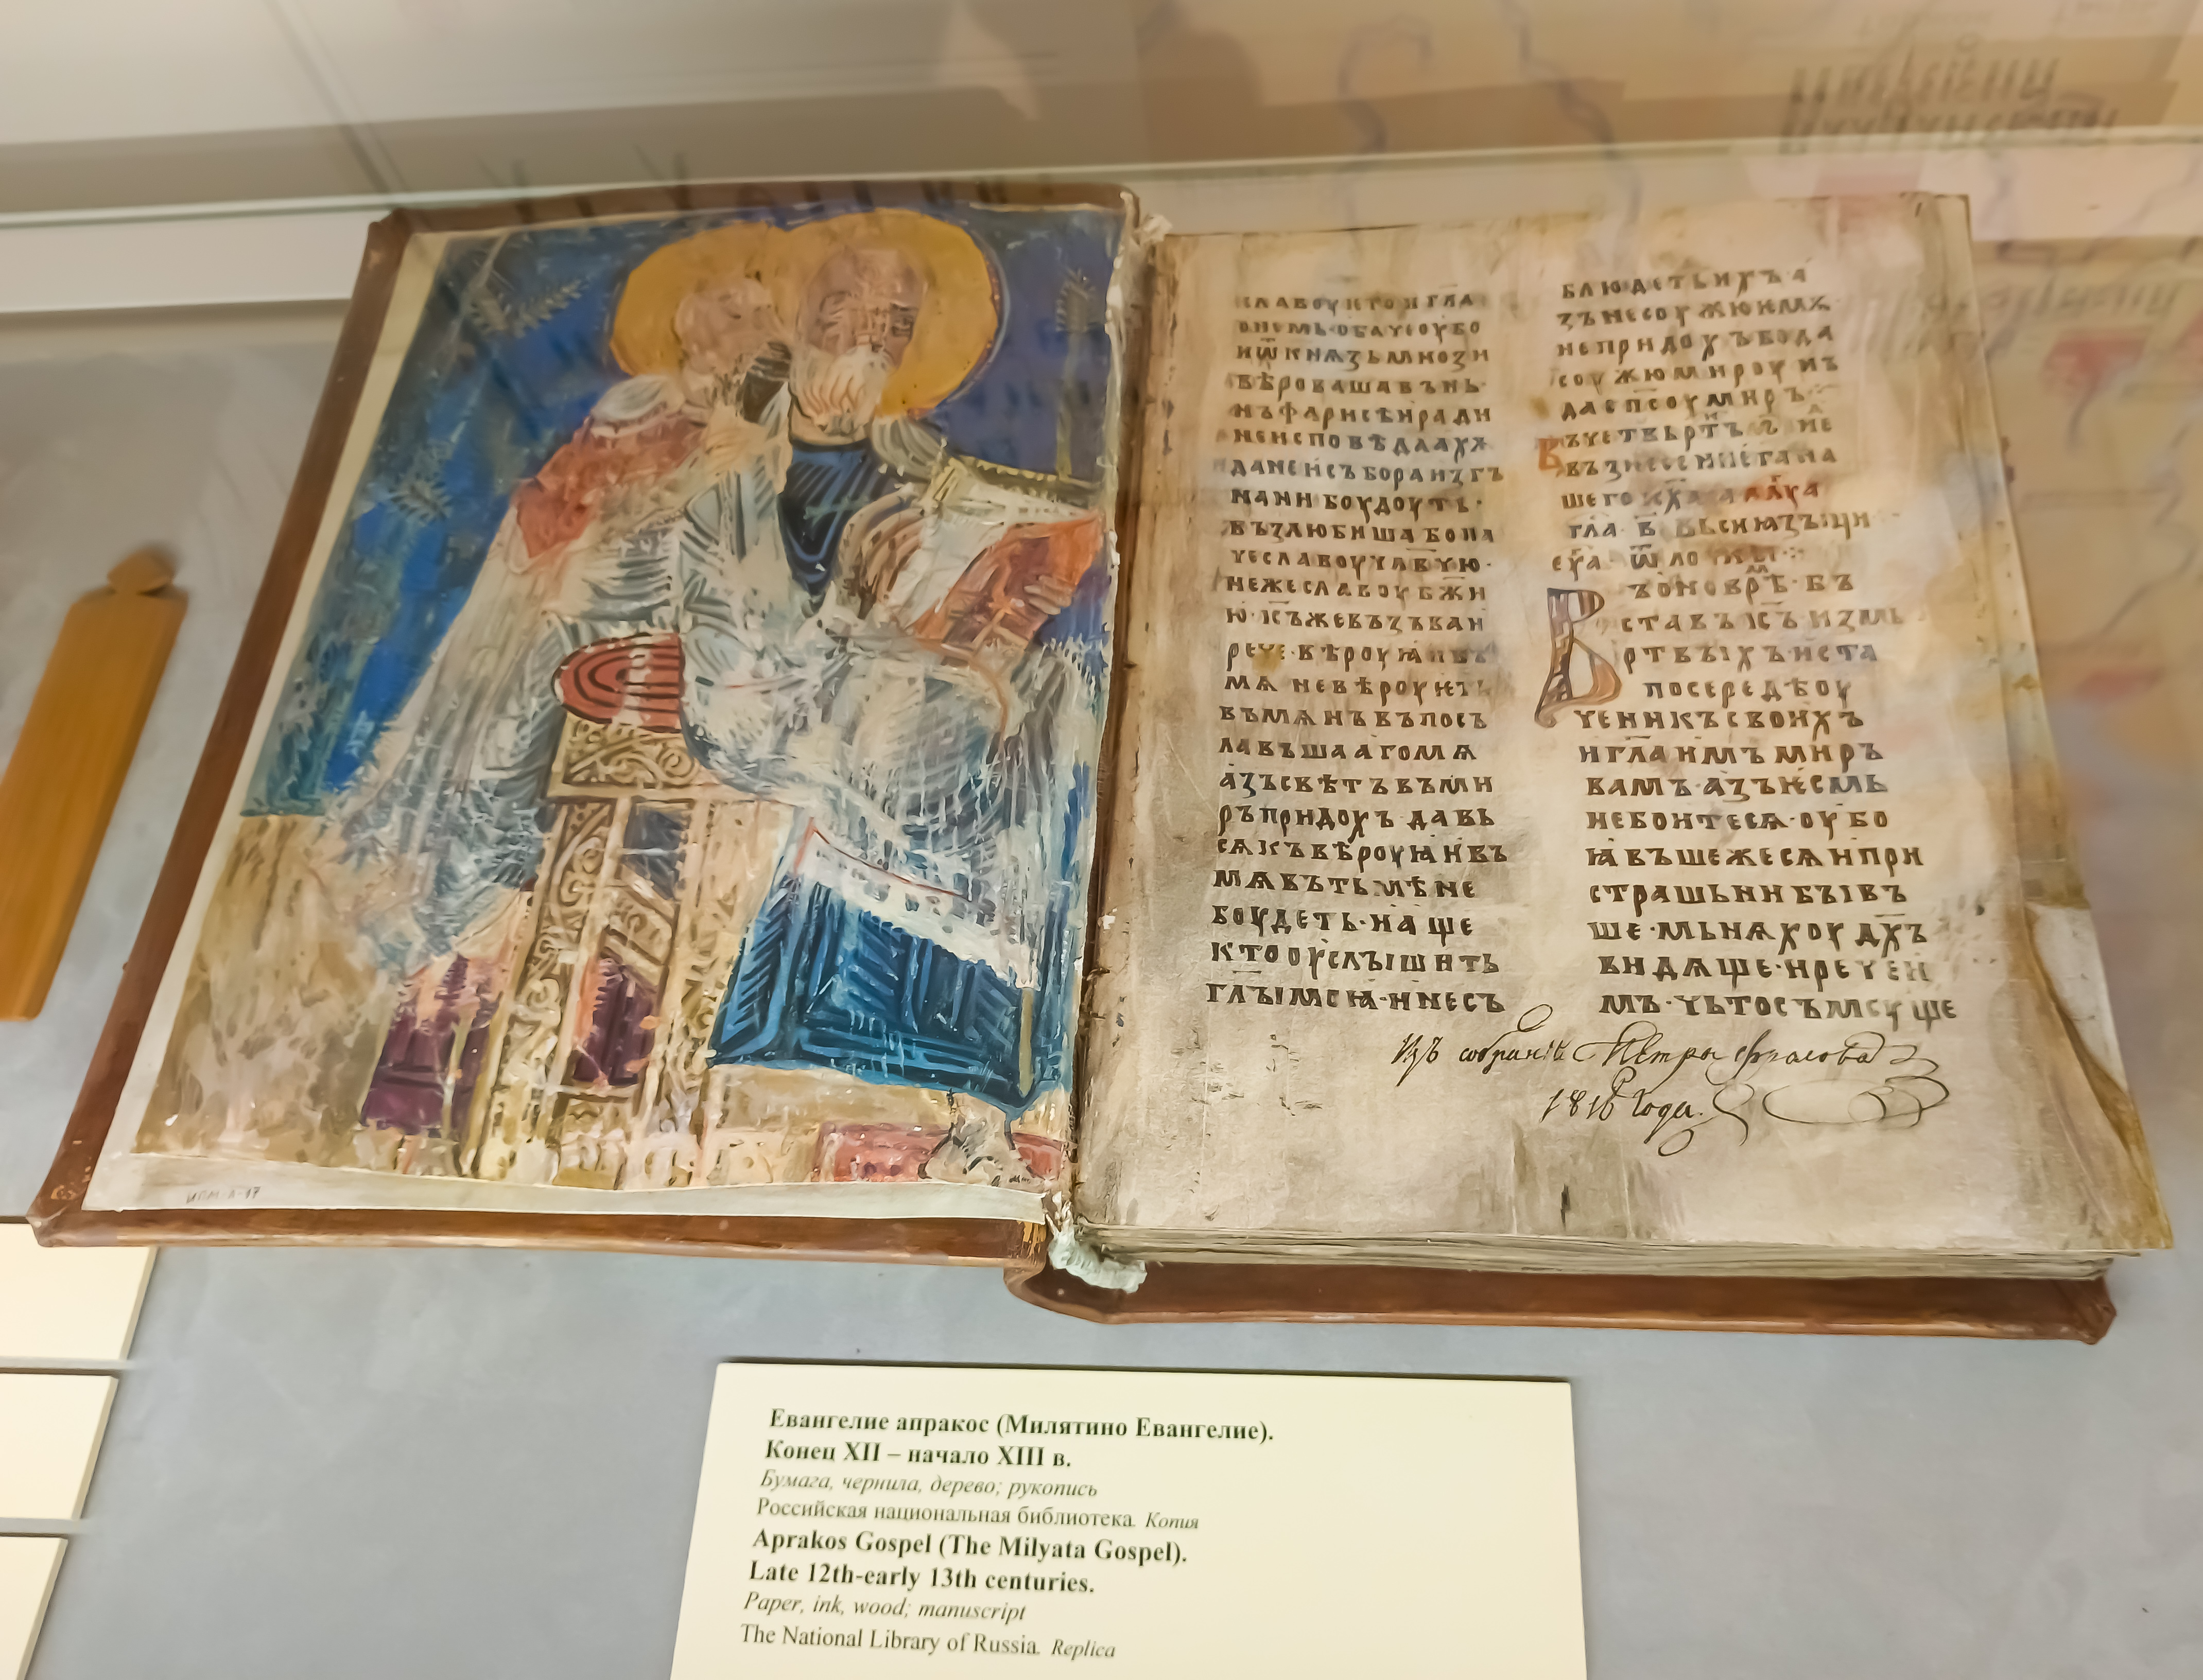 СЛАВОУ ИТО И ГЛ҃А
О НЕМЬ·ОБАЧЕ ОУБО
И Ѿ КНѦЗЬ МНОЗИ
ВѢРОВАША В НЬ·
НЪ ФАРИСѢИ РАДИ
НЕ ИСПОВѢДААХѪ
ДА НЕ ИСЪБОРА ИЗГЪ
НАНИ БОУДОУТЬ·
ВЪЗЛЮБИША БО ПА
ЧЕ СЛАВОУ ЧЛВ҃ЧЮ·
НЕЖЕ СЛАВОУ БЖ҃И
Ю·IС҃Ъ ЖЕ ВЪЗЪВА И
РЕЧЕ·ВѢРОУꙖИ ВЪ
МѦ НЕ ВѢРОУѤТЬ
ВЪ МѦ НЪ ВЪ ПОСЪ
ЛАВЪШААГО МѦ
АЗЪ СВѢТЪ ВЪ МИ
РЪ ПРИДОХЪ·ДА ВЬ
СѦКЪ ВѢРОУꙖИ ВЪ
МѦ ВЪ ТЬМѢ НЕ
БОУДЕТЬ·И АЩЕ
КТО ОУСЛЫШИТЬ
ГЛ҃Ы МОꙖ·И НЕ СЪ
БЛЮДЕТЬ ИХЪ А
ЗЪ НЕ СОУЖЮ ИМѪ·
НЕ ПРИДОХЪ БО ДА
СОУЖЮ МИРОУ НЪ
ДА СП҃СОУ МИРЪ·
ВЪ ЧЕТВЬРТ
ВЪЗНЕСЕНИЕ ГА НА
ШЕГО
ГЛА·В҃
ЕУА·Ѿ ЛО
ВЪ ОНО ВРѢ·ВЪ
СТАВЪ IС҃Ъ ИЗ МЬ
РТВЫХЪ И СТА
ПОСЕРЕДѢ ОУ
ЧЕНИКЪ СВОИХЪ
И ГЛ҃А ИМЪ МИРЪ
ВАМЪ·АЗЪ ѤСМЬ
НЕ БОИТЕСѦ·ОУБО
ꙖВЪШЕ ЖЕ СѦ И ПРИ
СТРАШЬНИ БЫВЪ
ШЕ·МЬНѦХОУ ДХ҃Ъ
ВИДѦЩЕ·И РЕЧЕ И
МЪ·ЧЬТО СЪМОУЩЕ
Изъ собранія Петра Фролова
1816 Года.
Евангелие апракос (Милятино Евангелие).
Конец XII – начало XIII в.
Бумага, чернила, дерево; рукопись
Российская национальная библиотека. Копия
Aprakos Gospel (The Milyata Gospel).
Late 12th-early 13th centuries.
Paper, ink, wood; manuscript
The National Library of Russia. Replica